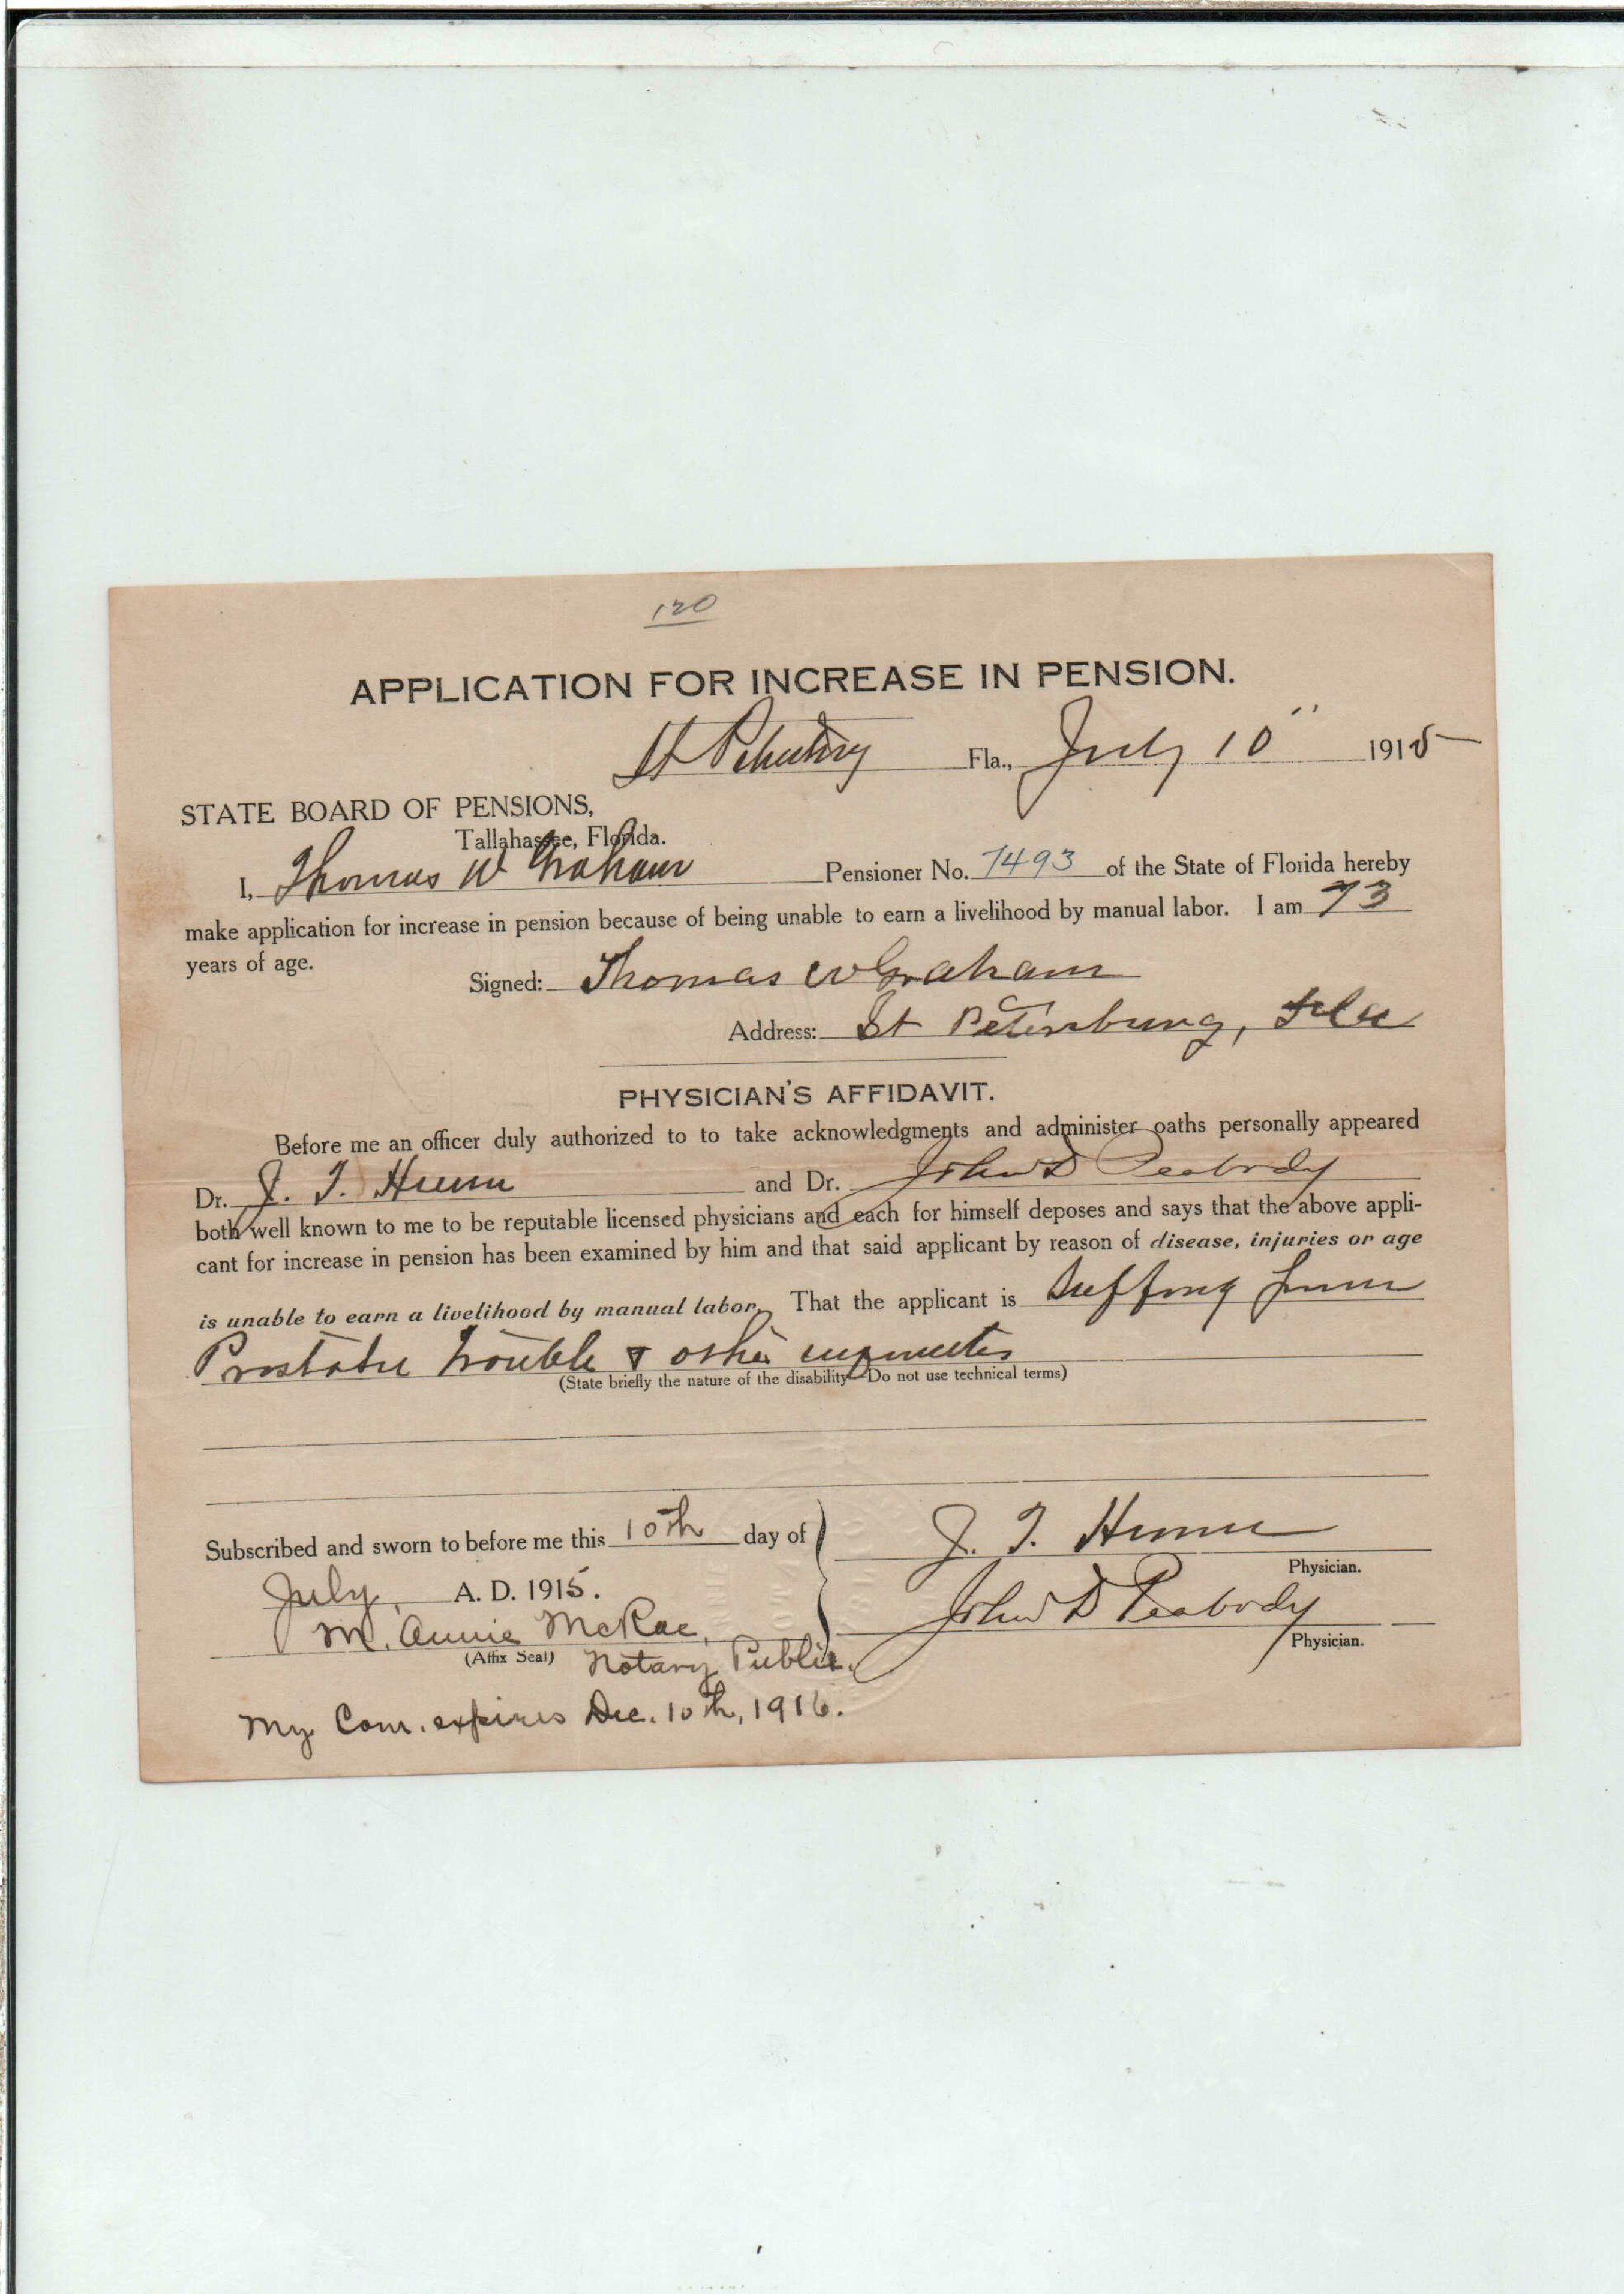 120
APPLICATION FOR INCREASE IN PENSION.
St Petersburg Fla., July 10" 1915
STATE BOARD OF PENSIONS,
Tallahassee, Florida.
I, Thomas W Graham Pensioner No. 7493 of the State of Florida hereby
make application for increase in pension because of being unable to earn a livelihood by manual labor. I am 73
years of age.
Signed: Thomas W Graham
Address: St Petersburg, Fla
PHYSICIAN'S AFFIDAVIT.
Before me an officer duly authorized to to take acknowledgments and administer oaths personally appeared
Dr. J. T. and Dr. John D Peabody
both well known to me to be reputable licensed physicians and each for himself deposes and says that the above appli-
cant for increase in pension has been examined by him and that said applicant by reason of disease, injuries or age
is unable to earn a livelihood by manual labor. That the applicant is suffring from
Prostatic trouble & other infirmities
(State briefly the nature of the disability Do not use technical terms)
Subscribed and sworn to before me this 10th day of J. T.
Physician.
July, A. D. 1915. John D Peabody
M. Annie McRae, Physician.
(Affix Seal) Notary Public.
My Com. expires Dec. 10th, 1916.